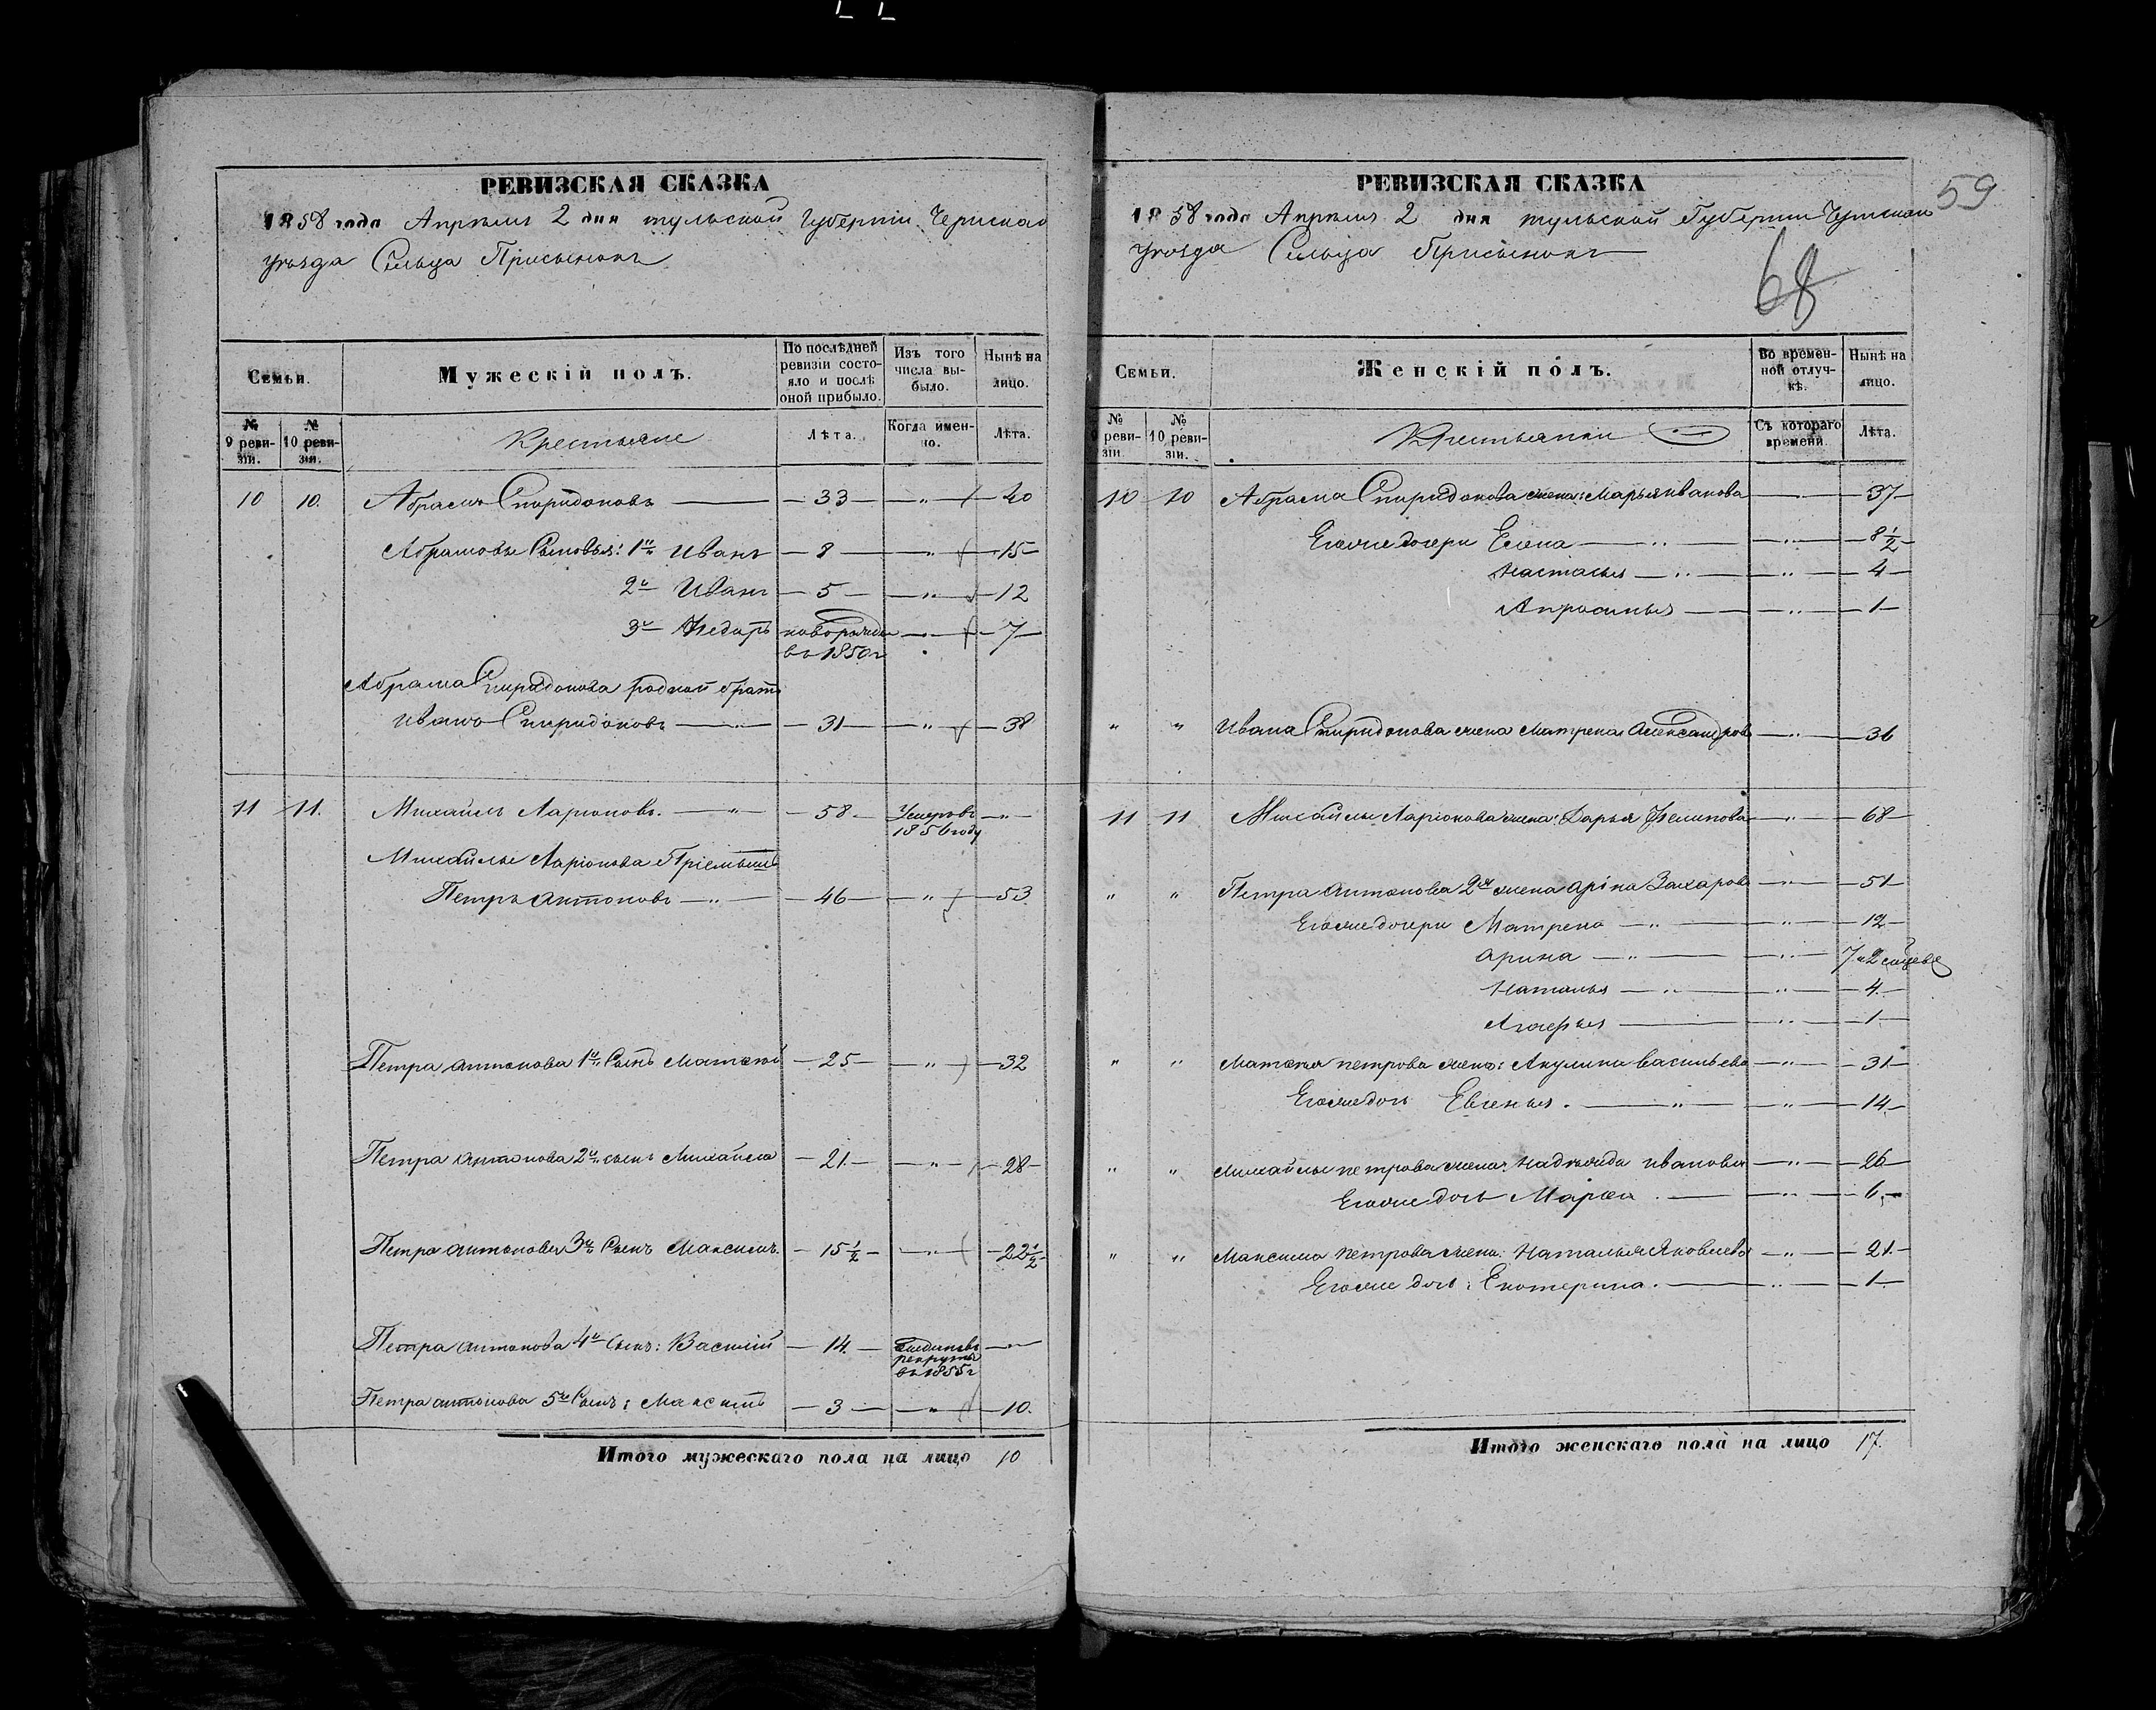 РЕВИЗСКАЯ СКАЗКА
1858 года Апреля 2 дня тульской губерніи Чернскаго
уезда Сельца Присынокъ
Семьи.
Мужескій полъ.
По послѣдней ревизіи состояло и послѣ оной прибыло.
Изъ того числа выбыло.
Нынѣ на лицо.
№ 9 ревизіи.
№ 10 ревизіи.
Крестьяне
Лѣта.
Когда именно.
Лѣта.
10 10. Абрамъ Спиридоновъ — 33 — " — 40
Абрамовы Сыновья: 1й Иванъ — 8 — " — 15
2й Иванъ — 5 — " — 12
3й Федоръ новорожден — " — 7
въ 1850г
Абрама Спиридонова родной братъ
Иванъ Спиридоновъ — " — 31 — " — 38
11 11. Михайла Ларионовъ. — " — 58. Умеръ въ — " —
1856 году
Михайлы Ларіонова Пріемышъ
Петръ Антоновъ — " — 46 — " — 53
Петра Антонова 1й Сынъ Матвѣй — 25 — " — 32
Петра Антонова 2й сынъ Михайла — 21. — " — 28
Петра Антонова 3й Сынъ Максимъ. — 15 1/2 — " — 22 1/2
Петра Антонова 4й Сынъ: Василій — 14. — рекруты — " —
въ 1855г
Петра Антонова 5й Сынъ: Максимъ — 3 — " — 10.
Итого мужескаго пола на лицо 10
РЕВИЗСКАЯ СКАЗКА
59
1858 года Апреля 2 дня тульской Губерніи Чернскаго
уезда Сельца Присынокъ
68
Семьи.
Женскій полъ.
Во временной отлучкѣ.
Нынѣ на лицо.
№ 9 ревизіи.
№ 10 ревизіи.
Крестьянки
Съ котораго времени.
Лѣта.
10 10 Абрама Спиридонова жена: Марья Иванова — 37
Егоже дочери Елена — " — 8 1/2
Настасья — " — 4
Апросинья — " — 1
" " Ивана Спиридонова жена Матрена Александрова — " — 36
11 11 Михайлы Ларіонова жена: Дарья Филипова — " — 68
" " Петра Антонова 2я жена Аріна Захарова — " — 51
Егоже дочери Матрена — " — 12
Арина — " — 7 и 2 месяцевъ
Наталья — " — 4.
Агафья — " — 1.
" " Матвѣя Петрова жена: Акулина Васильева — " — 31
Егоже дочь Евгенья. — " — 14.
" " Михайлы Петрова жена: Надежда Иванова — " — 26
Егоже дочь Марья. — " — 6.
" " Максима Петрова жена: Наталья Яковлева — " — 21.
Егоже дочь: Екатерина. — " — 1.
Итого женскаго пола на лицо 17.